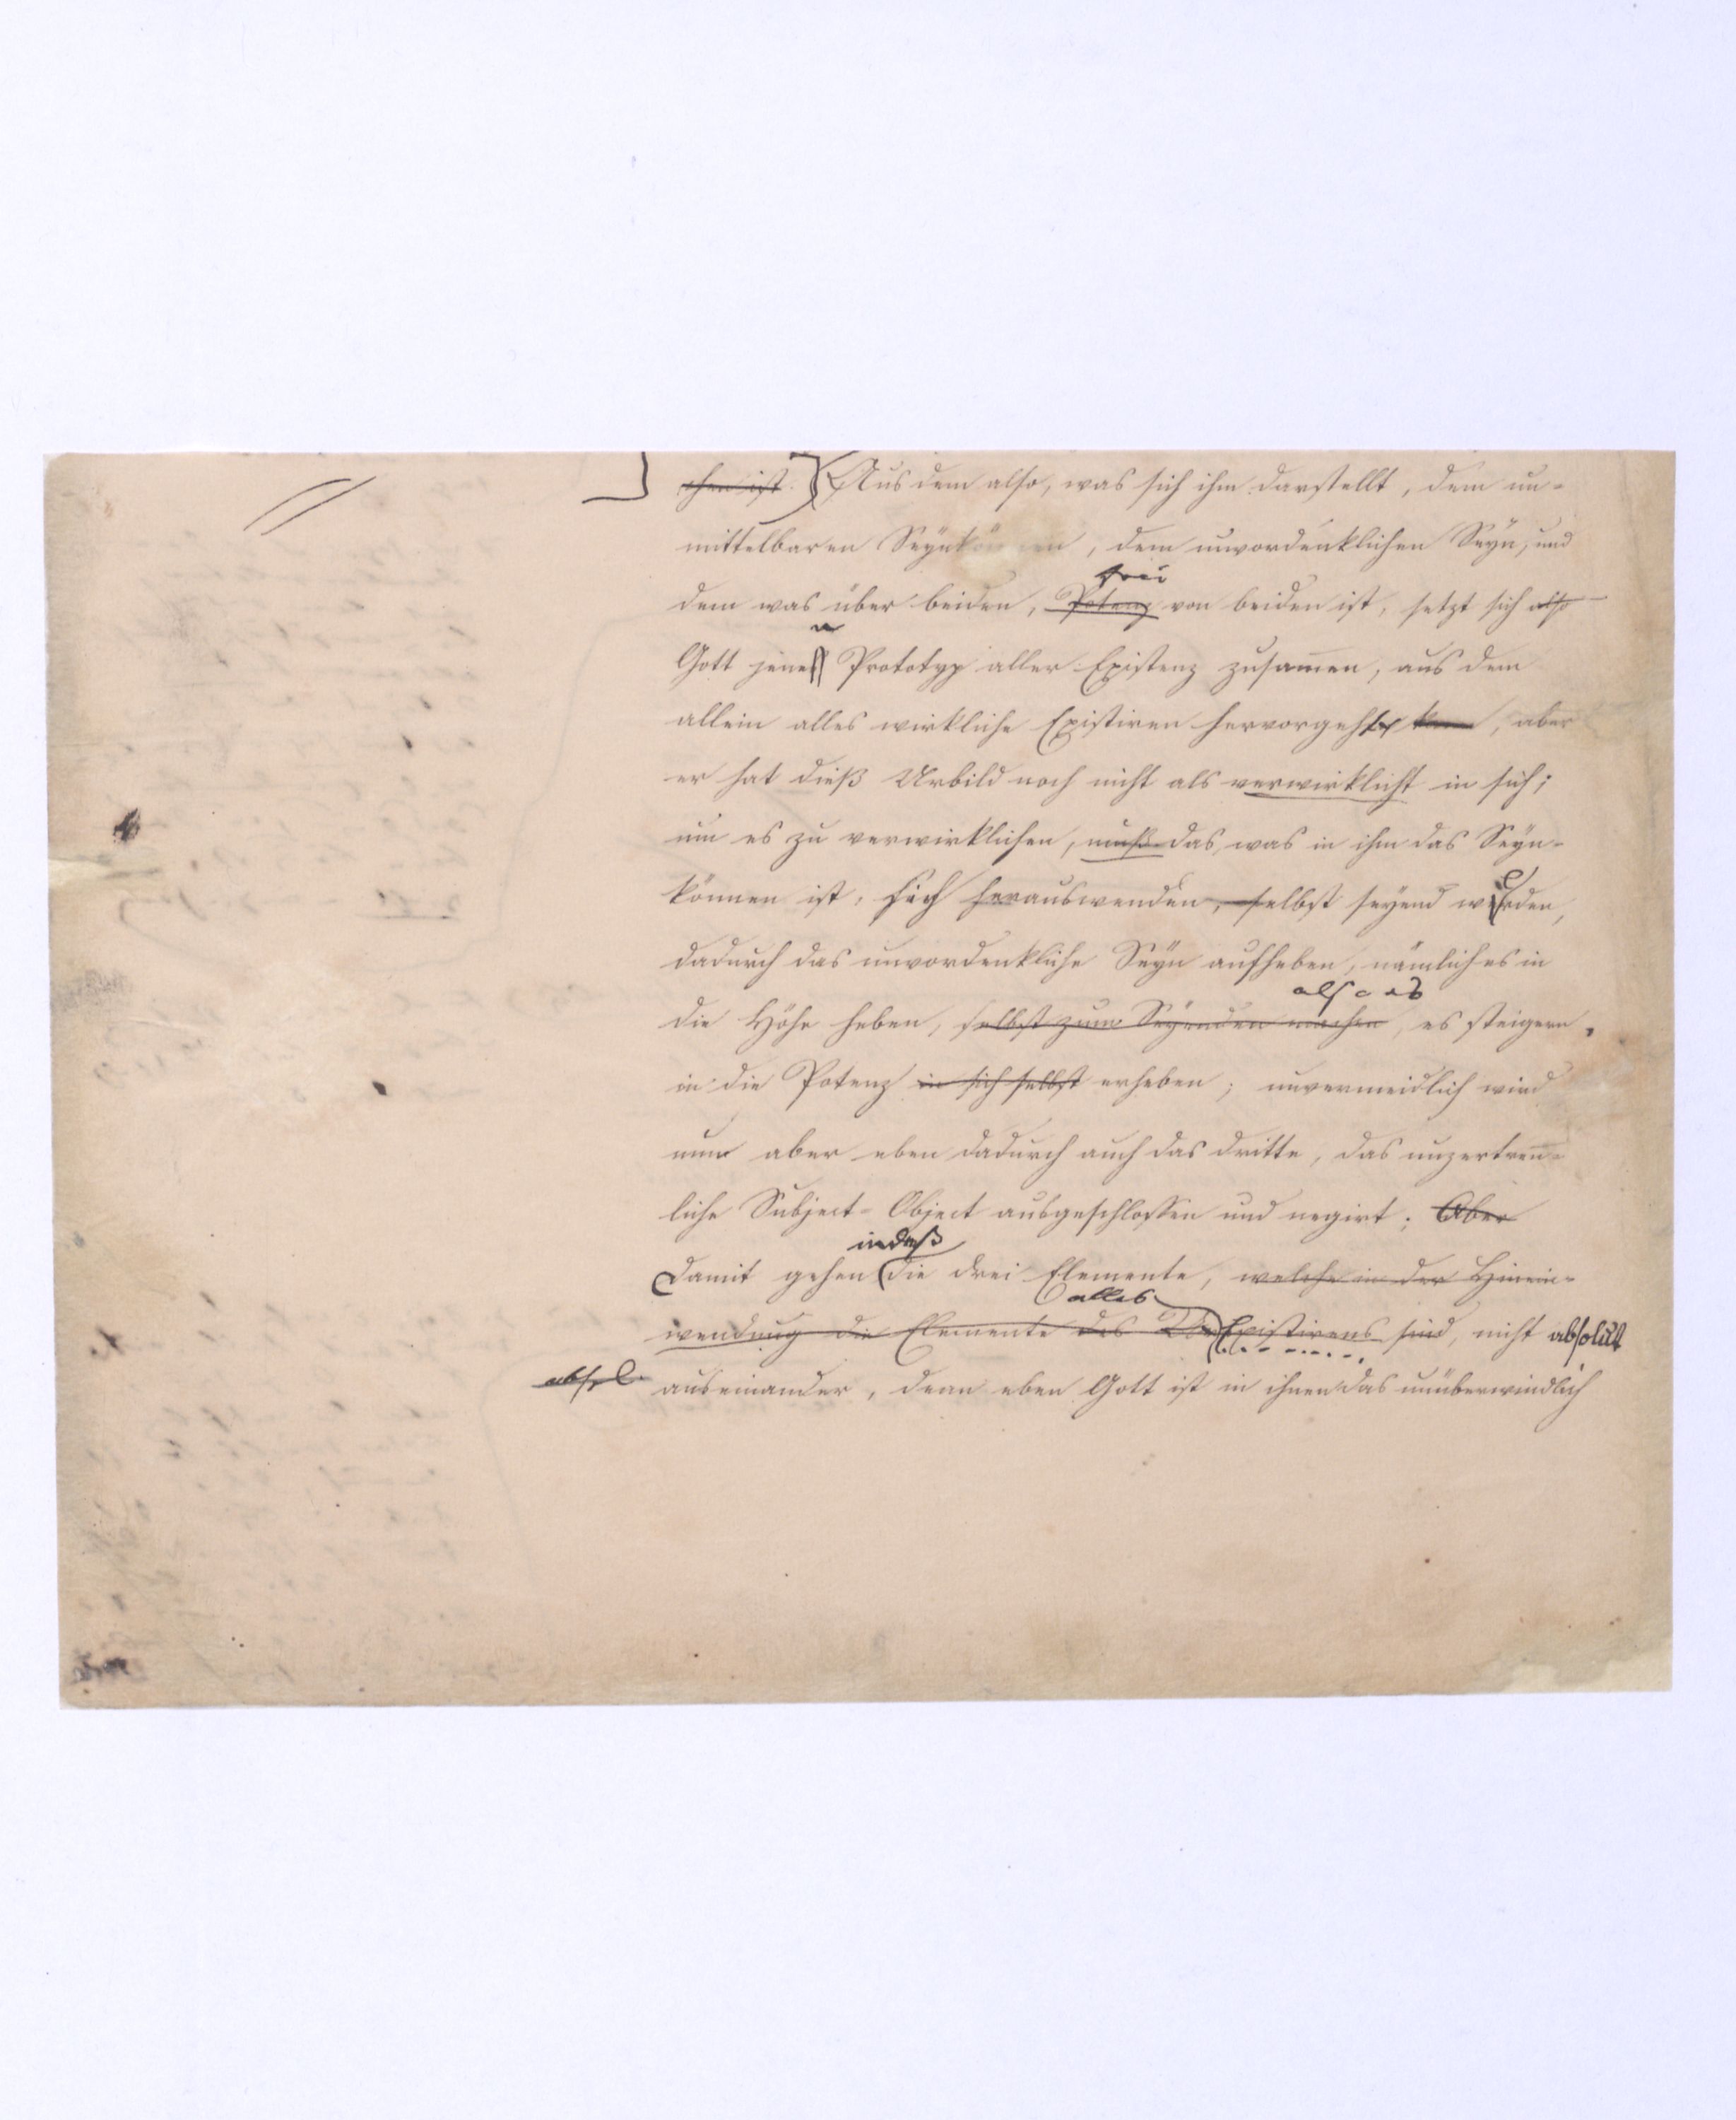 chen ist. Aus dem also, was sich ihm darstellt, dem un-
mittelbaren Seynkönnen, dem unvordenklichen Seyn, und
frei
dem was über beiden, Potenz von beiden ist, setzt sich also
n
Gott jenes Prototyp aller Existenz zusamen, aus dem
allein alles wirkliche Existiren hervorgeht kann, aber
er hat dieß Urbild noch nicht als verwirklicht in sich;
um es zu verwirklichen, muß das, was in ihm das Seyn-
können ist, sich herauswenden, selbst seyend werden,
dadurch das unvordenkliche Seyn aufheben, nämlich es in
also es
die Höhe heben, selbst zum Seyenden machen, es steigern,
in die Potenz in sich selbst erheben; unvermeidlich wird
nun aber eben dadurch auch das dritte, das unzertren-
liche Subject-Object ausgeschlossen und negirt; Aber
indeß
Damit gehen die drei Elemente, welche in der Hinein-
alles
wendung die Elemente des Existirens sind, nicht absolut
absol. auseinander, denn eben Gott ist in ihnen das unüberwindlich